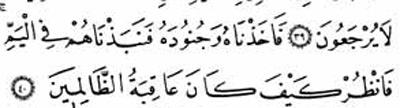 لَا يُرْجَعُونَ ۝٣٩ فَأَخَذْنَاهُ وَجُنُودَهُ فَنَبَذْنَاهُمْ فِي الْيَمِّ
فَانْظُرْ كَيْفَ كَانَ عَاقِبَةُ الظَّالِمِينَ ۝٤٠